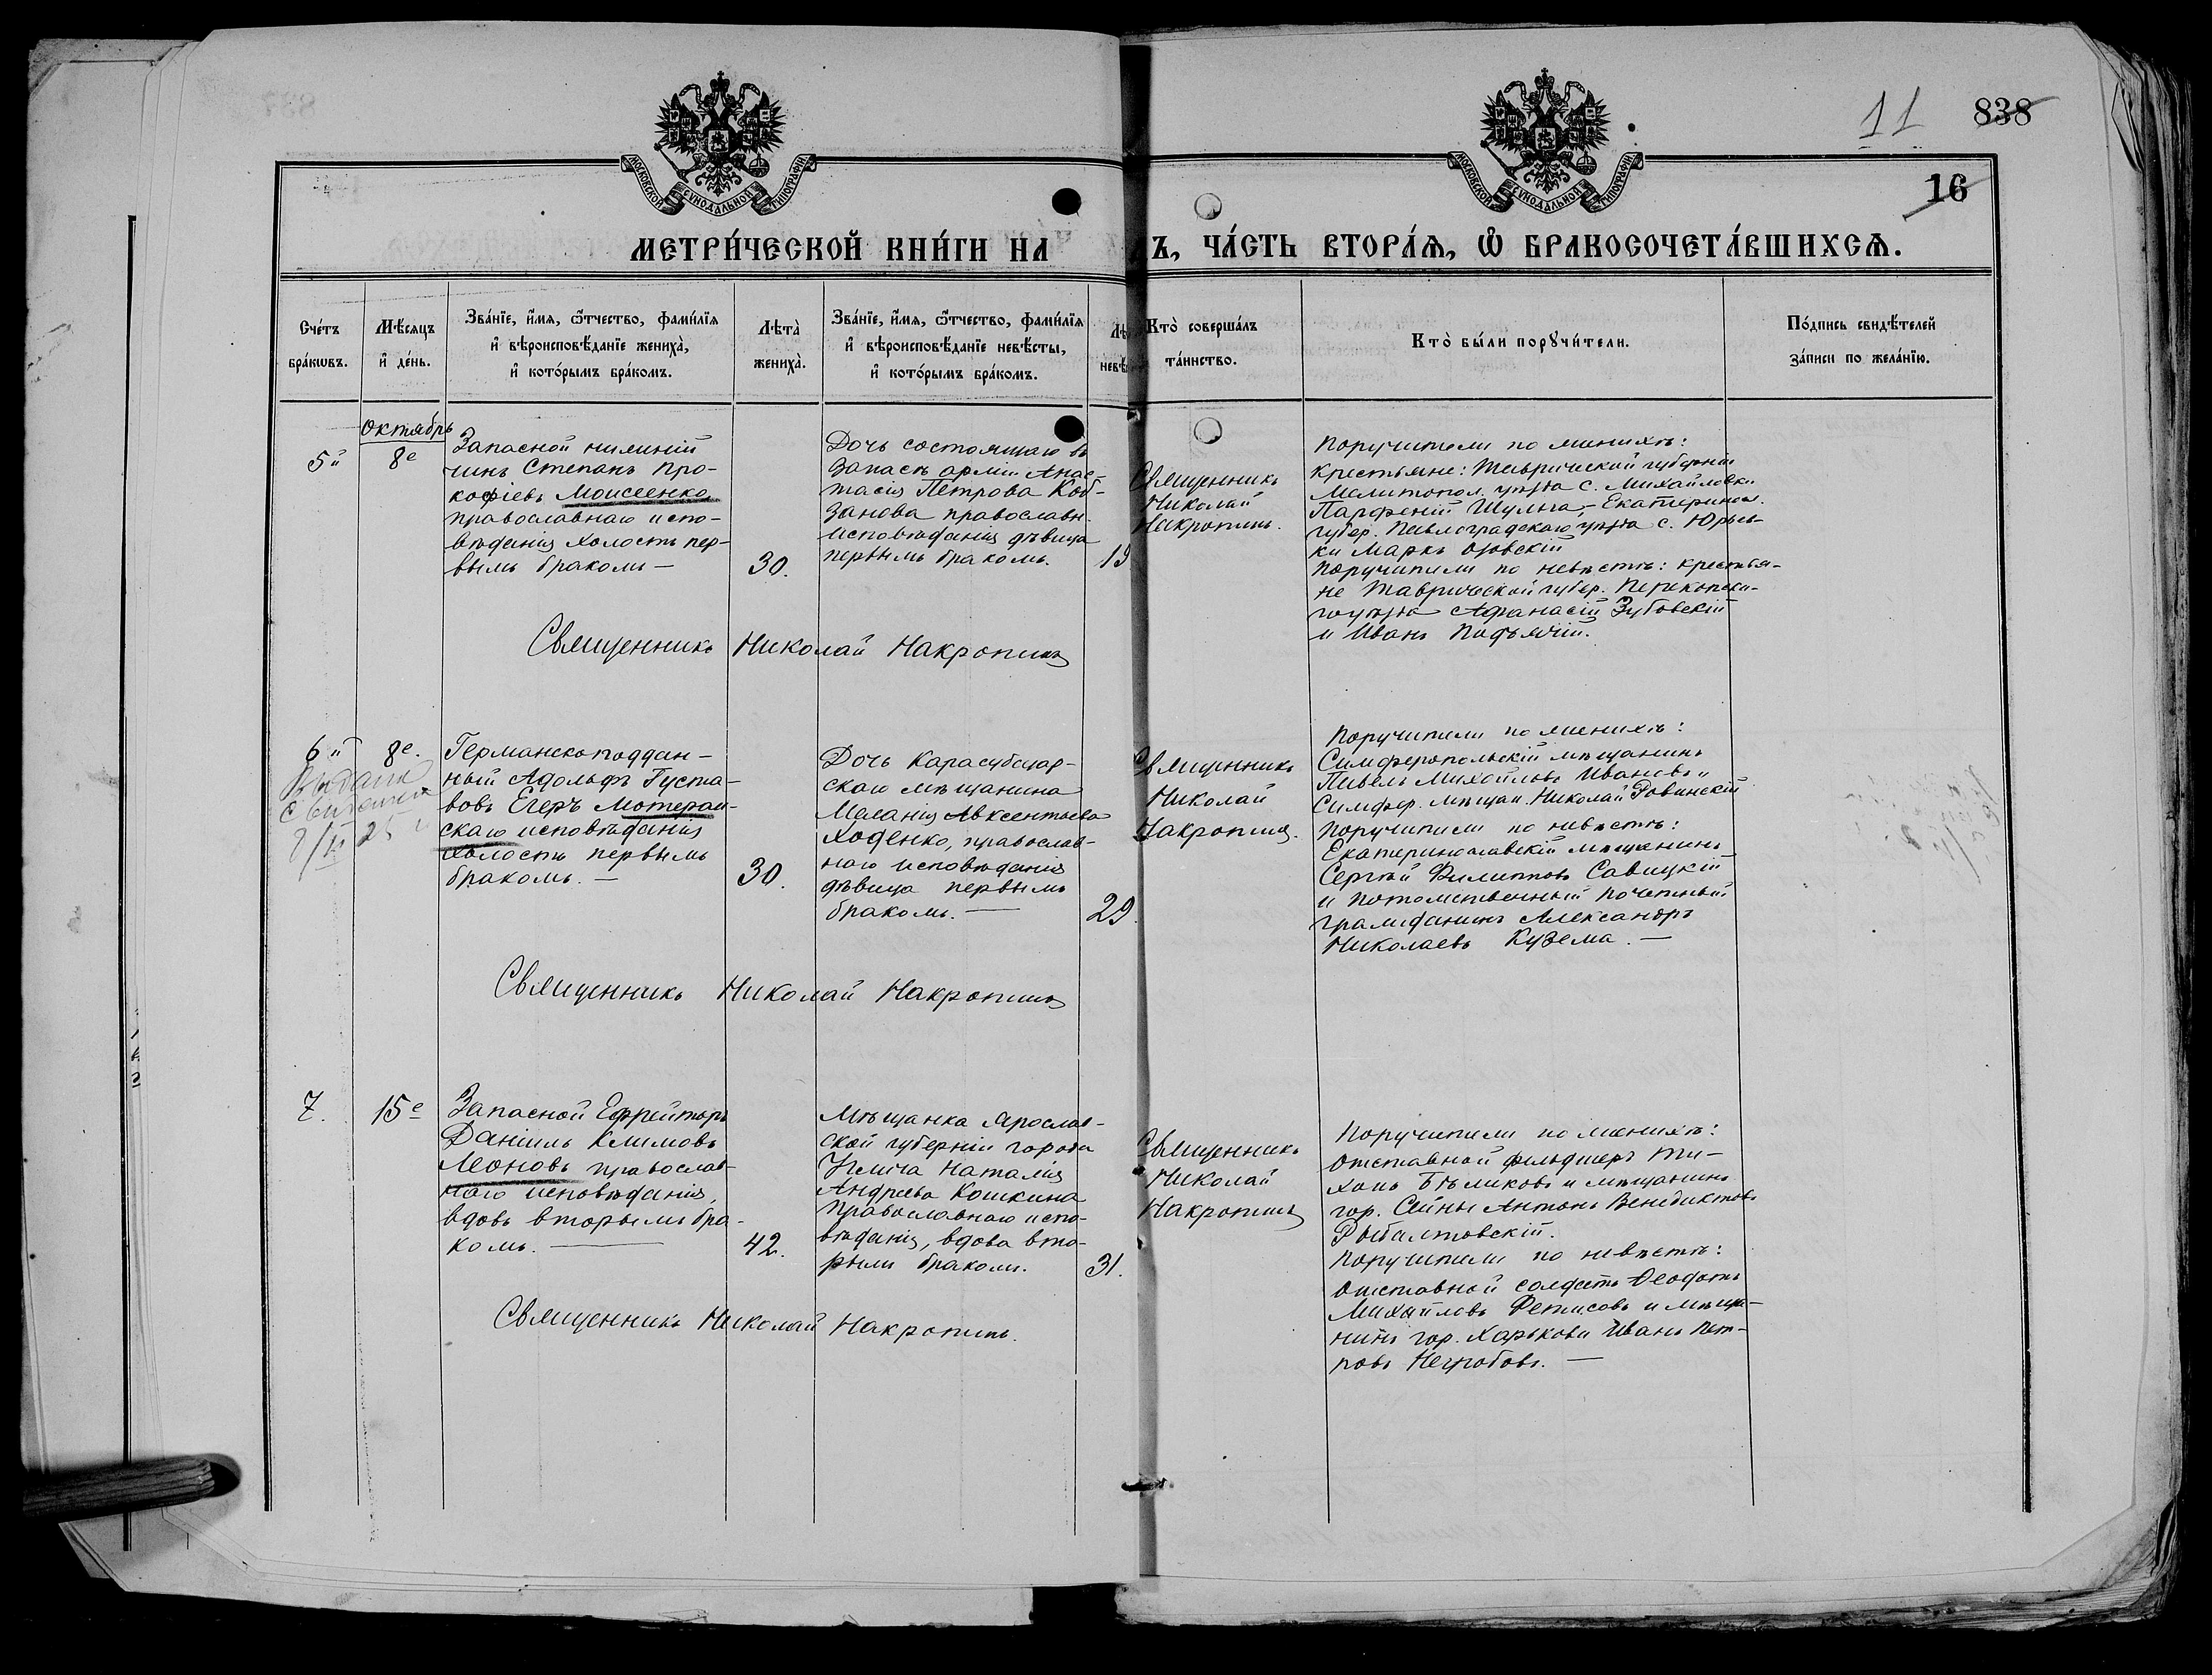 11 838
16
МОСКОВСКОЙ СУНОДАЛЬНОЙ ТИПОГРАФІИ
МОСКОВСКОЙ СУНОДАЛЬНОЙ ТИПОГРАФІИ
МЕТРИ́ЧЕСКОЙ КНИ́ГИ НА
Ъ, ЧА́СТЬ ВТОРА́Я, Ѽ БРАКОСОЧЕТА́ВШИХСЯ.
Сче́тъ
бра́кѡвъ.
Мѣ́сяцъ
и҆ де́нь.
Зва́нїе, и҆́мя, ѻ҆́тчество, фами́лїя
и҆ вѣроисповѣ́данїе жениха̀,
и҆ кото́рымъ бра́комъ.
Лѣта̀
жениха̀.
Зва́нїе, и҆́мя, ѻ҆́тчество, фами́лїя
и҆ вѣроисповѣ́данїе невѣ́сты,
и҆ кото́рымъ бра́комъ.
Кто̀ соверша́лъ
та́инство.
Кто̀ бы́ли порꙋчи́тели.
По́дпись свидѣ́телей
за́писи по жела́нїю.
Октябрь
5й
8е
Запасной нижній
чинъ Степанъ Про-
кофіевъ Моисеенко
православнаго испо-
вѣданія холостъ пер-
вымъ бракомъ —
30.
Дочь состоящаго въ
Запасѣ арміи Анас-
тасія Петрова Коб-
занова православн.
исповѣданія дѣвица
первымъ бракомъ.
19
Священникъ
Николай
Накропинъ.
Поручители по женихѣ:
крестьяне: Таврической губерніи
Мелитопол. уѣзда с. Михайловки
Парфеній Шульга, — Екатериносл.
губер. Павлоградскаго уѣзда с. Юрьев-
ки Маркъ Озовскій
Поручители по невѣстѣ: крестья-
не Таврической губер. Перекопска-
го уѣзда Афанасій Зубовскій
и Иванъ Подъячій.
Священникъ Николай Накропинъ
6й
8е.
Выдана
8/IV 25 г
Германскоподдан-
ный Адольфъ Густа-
вовъ Егеръ Лютеран-
скаго исповѣданія
холостъ первымъ
бракомъ. —
30.
Дочь Карасубазар-
скаго мѣщанина
Маланія Авксентьева
Ходенко, православ-
наго исповѣданія
дѣвица первымъ
бракомъ. —
29.
Священникъ
Николай
Накропинъ.
Поручители по женихѣ:
Симферопольскій мѣщанинъ
Павелъ Михайловъ Ивановъ и
Симфер. мѣщан. Николай Ровинскій
Поручители по невѣстѣ:
Екатеринославскій мѣщанинъ
Сергѣй Филипповъ Савицкій
и потомственный почетный
гражданинъ Александръ
Николаевъ Кузема. —
Священникъ Николай Накропинъ
7.
15е
Запасной Ефрейторъ
Даніилъ Климовъ
Леоновъ православ-
наго исповѣданія,
вдовъ вторымъ бра-
комъ. —
42.
Мѣщанка Ярослав-
ской губерніи города
Углича Наталія
Андреева Кошкина
Православнаго испо-
вѣданія, вдова вто-
рымъ бракомъ.
31.
Священникъ
Николай
Накропинъ
Поручители по женихѣ:
отставной фельдшеръ Ти-
хонъ Бѣликовъ и мѣщанинъ
гор. Сейны Антонъ Венедиктовъ
Рыбалтовскій.
Поручители по невѣстѣ:
отставной солдатъ Феодотъ
Михайловъ Фетисовъ и мѣща-
нинъ гор. Харькова Иванъ Пет-
ровъ Негробовъ. —
Священникъ Николай Накропинъ.